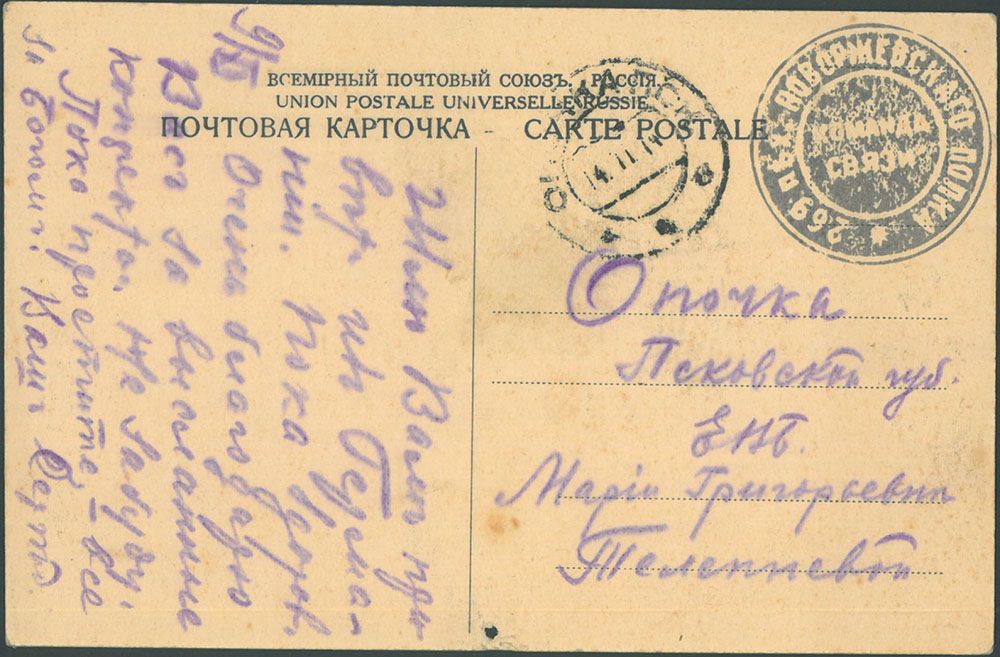 ВСЕМІРНЫЙ ПОЧТОВЫЙ СОЮЗЪ. РОССІЯ.
UNION POSTALE UNIVERSELLE RUSSIE
ПОЧТОВАЯ КАРТОЧКА - CARTE POSTALE
14.11.14
269 ПѢХ. НОВОРЖЕВСКАГО ПОЛКА
КОМАНДА
СВЯЗИ
Опочка
Псковской губ.
ЕВБ.
Маріи Григорьевнѣ
Телепневой
Шлю Вамъ при
вѣт изъ Герма-
ніи. Пока здоров.
Очень благодарю
Васъ за высланныя
конфеты. Не забуду.
Пока простите. Все
за Богомъ. Вашъ